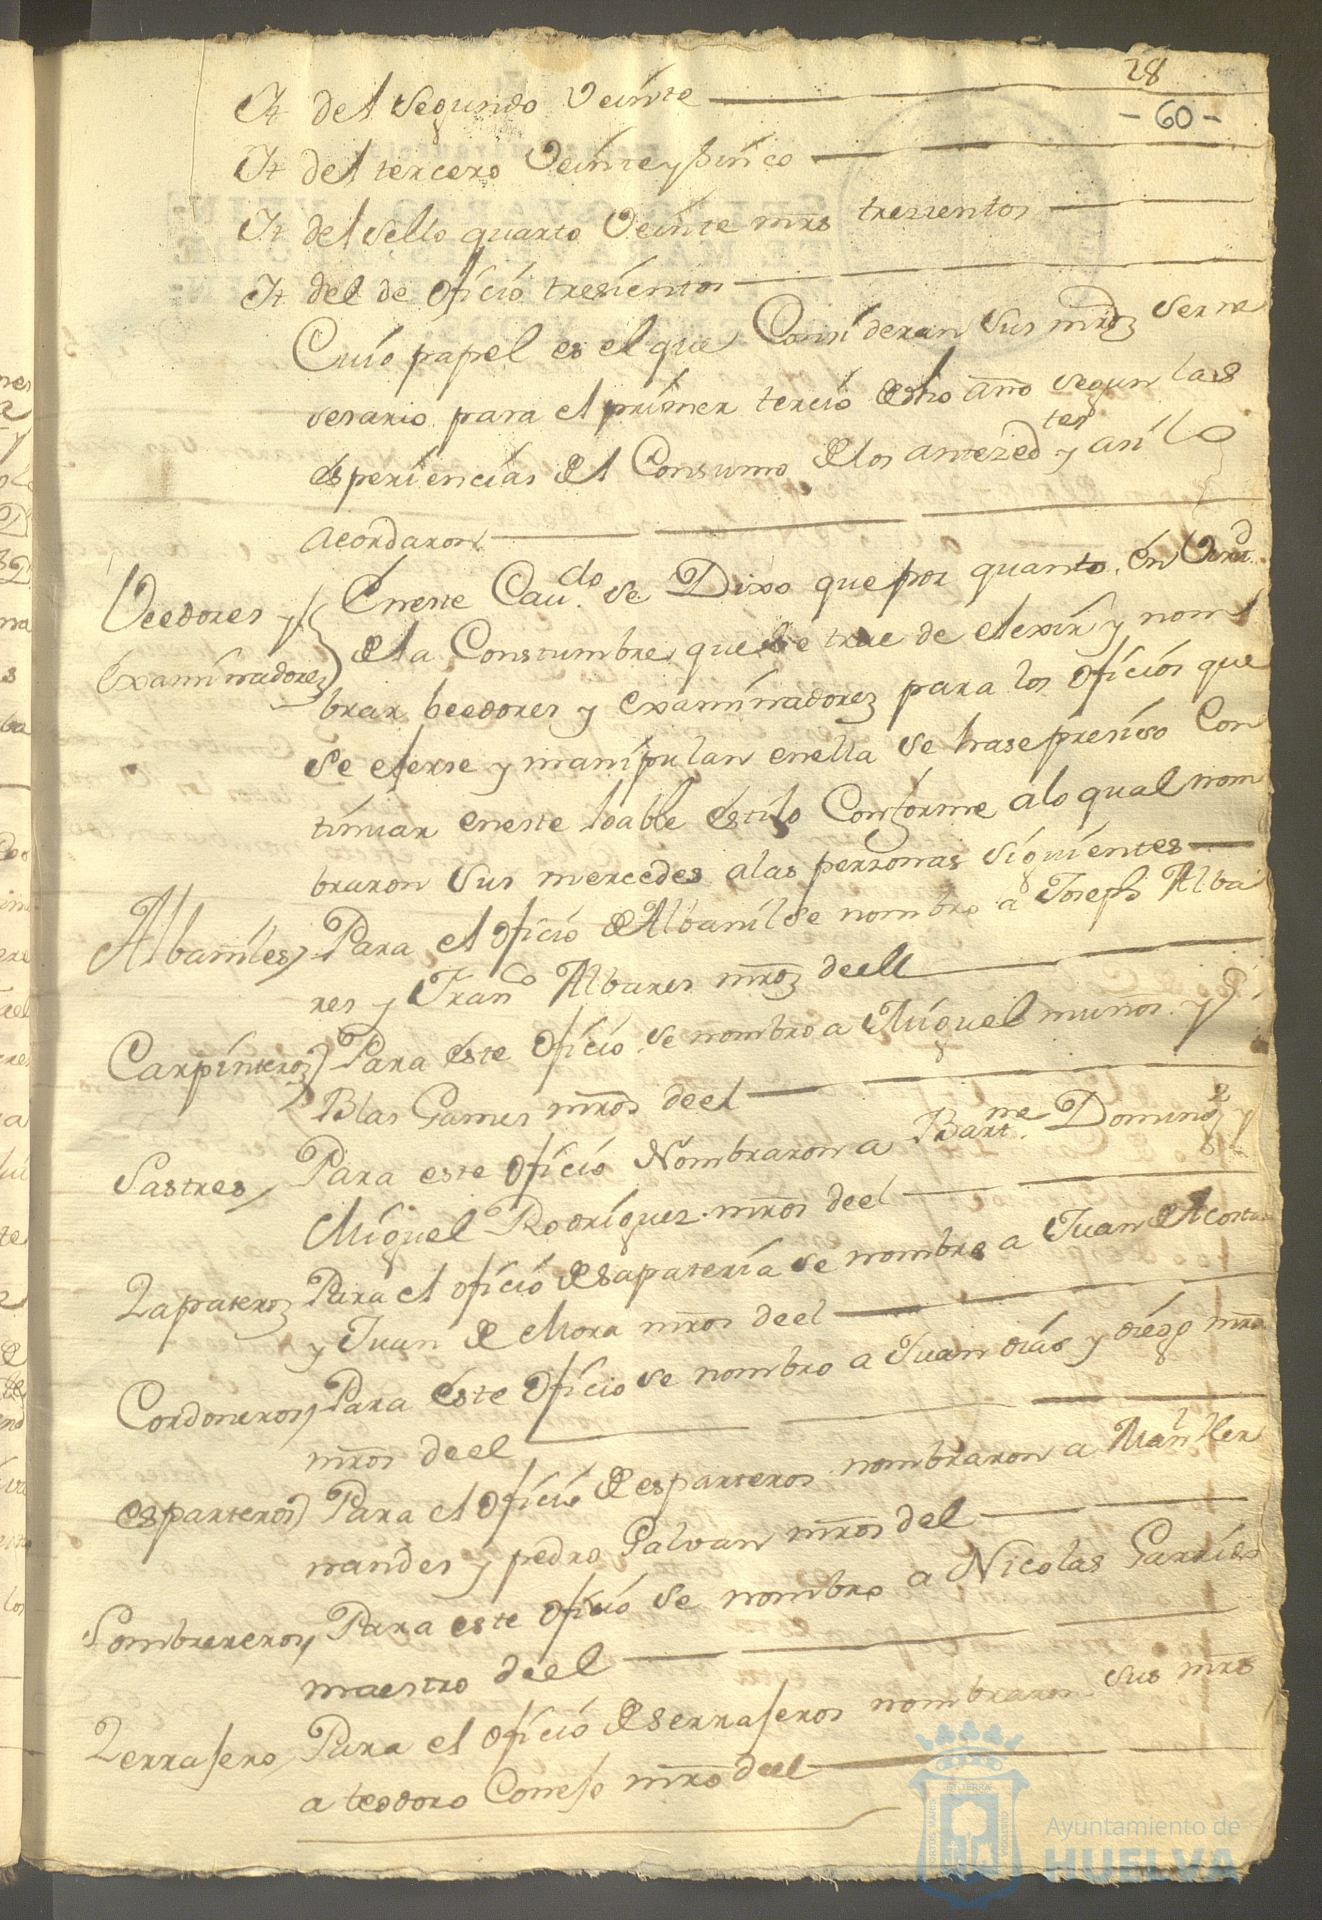 28
- 60 -
Yt del segundo Veinte
Yt del tercero Veinte y sinco
Yt del sello quarto Veinte mrs tresientos
Yt del de ofisio tresientos
Cuio papel es el que Consideran sus mrds ser ne
sesario para el primer tercio de dho año segun las
esperiencias del Consumo de los antezedtes y asi lo
acordaron
Veedores y
Examinadores
En este Cavdo se Dixo que por quanto en Virtd
de la Constumbre que se trae de elexir y nom
brar beedores y examinadores para los ofisios que
se eserse y manipulan en ella se hase presiso Con
tinuar en este loable estilo Conforme a lo qual nom
braron sus mercedes a las personas siguientes
Albaniles Para el ofisio de Albanil se nombro a Joseph Alba
res y Franco Albares mros de ell
Carpinteros Para este ofisio se nombro a Miguel muños y
Blas Games mros de el
Sastres Para este ofisio Nombraron a Bartme Doming y
Miguel Rodriguez mros de el
Zapateros Para el ofisio de sapateria se nombro a Juan de Acosta
y Juan de Mora mros de el
Cordoneros Para este ofisio se nombro a Juan dias y diego
mros de el
esparteros Para el ofisio de esparteros nombraron a Manl Her
nandes y pedro Galvan mros del
Sombrereros Para este ofisio se nombro a Nicolas Garrido
maestro de el
Zerrasero Para el ofisio de serraseros nombraron sus mrs
a teodoro Consejo mro del
Ayuntamiento de
HUELVA